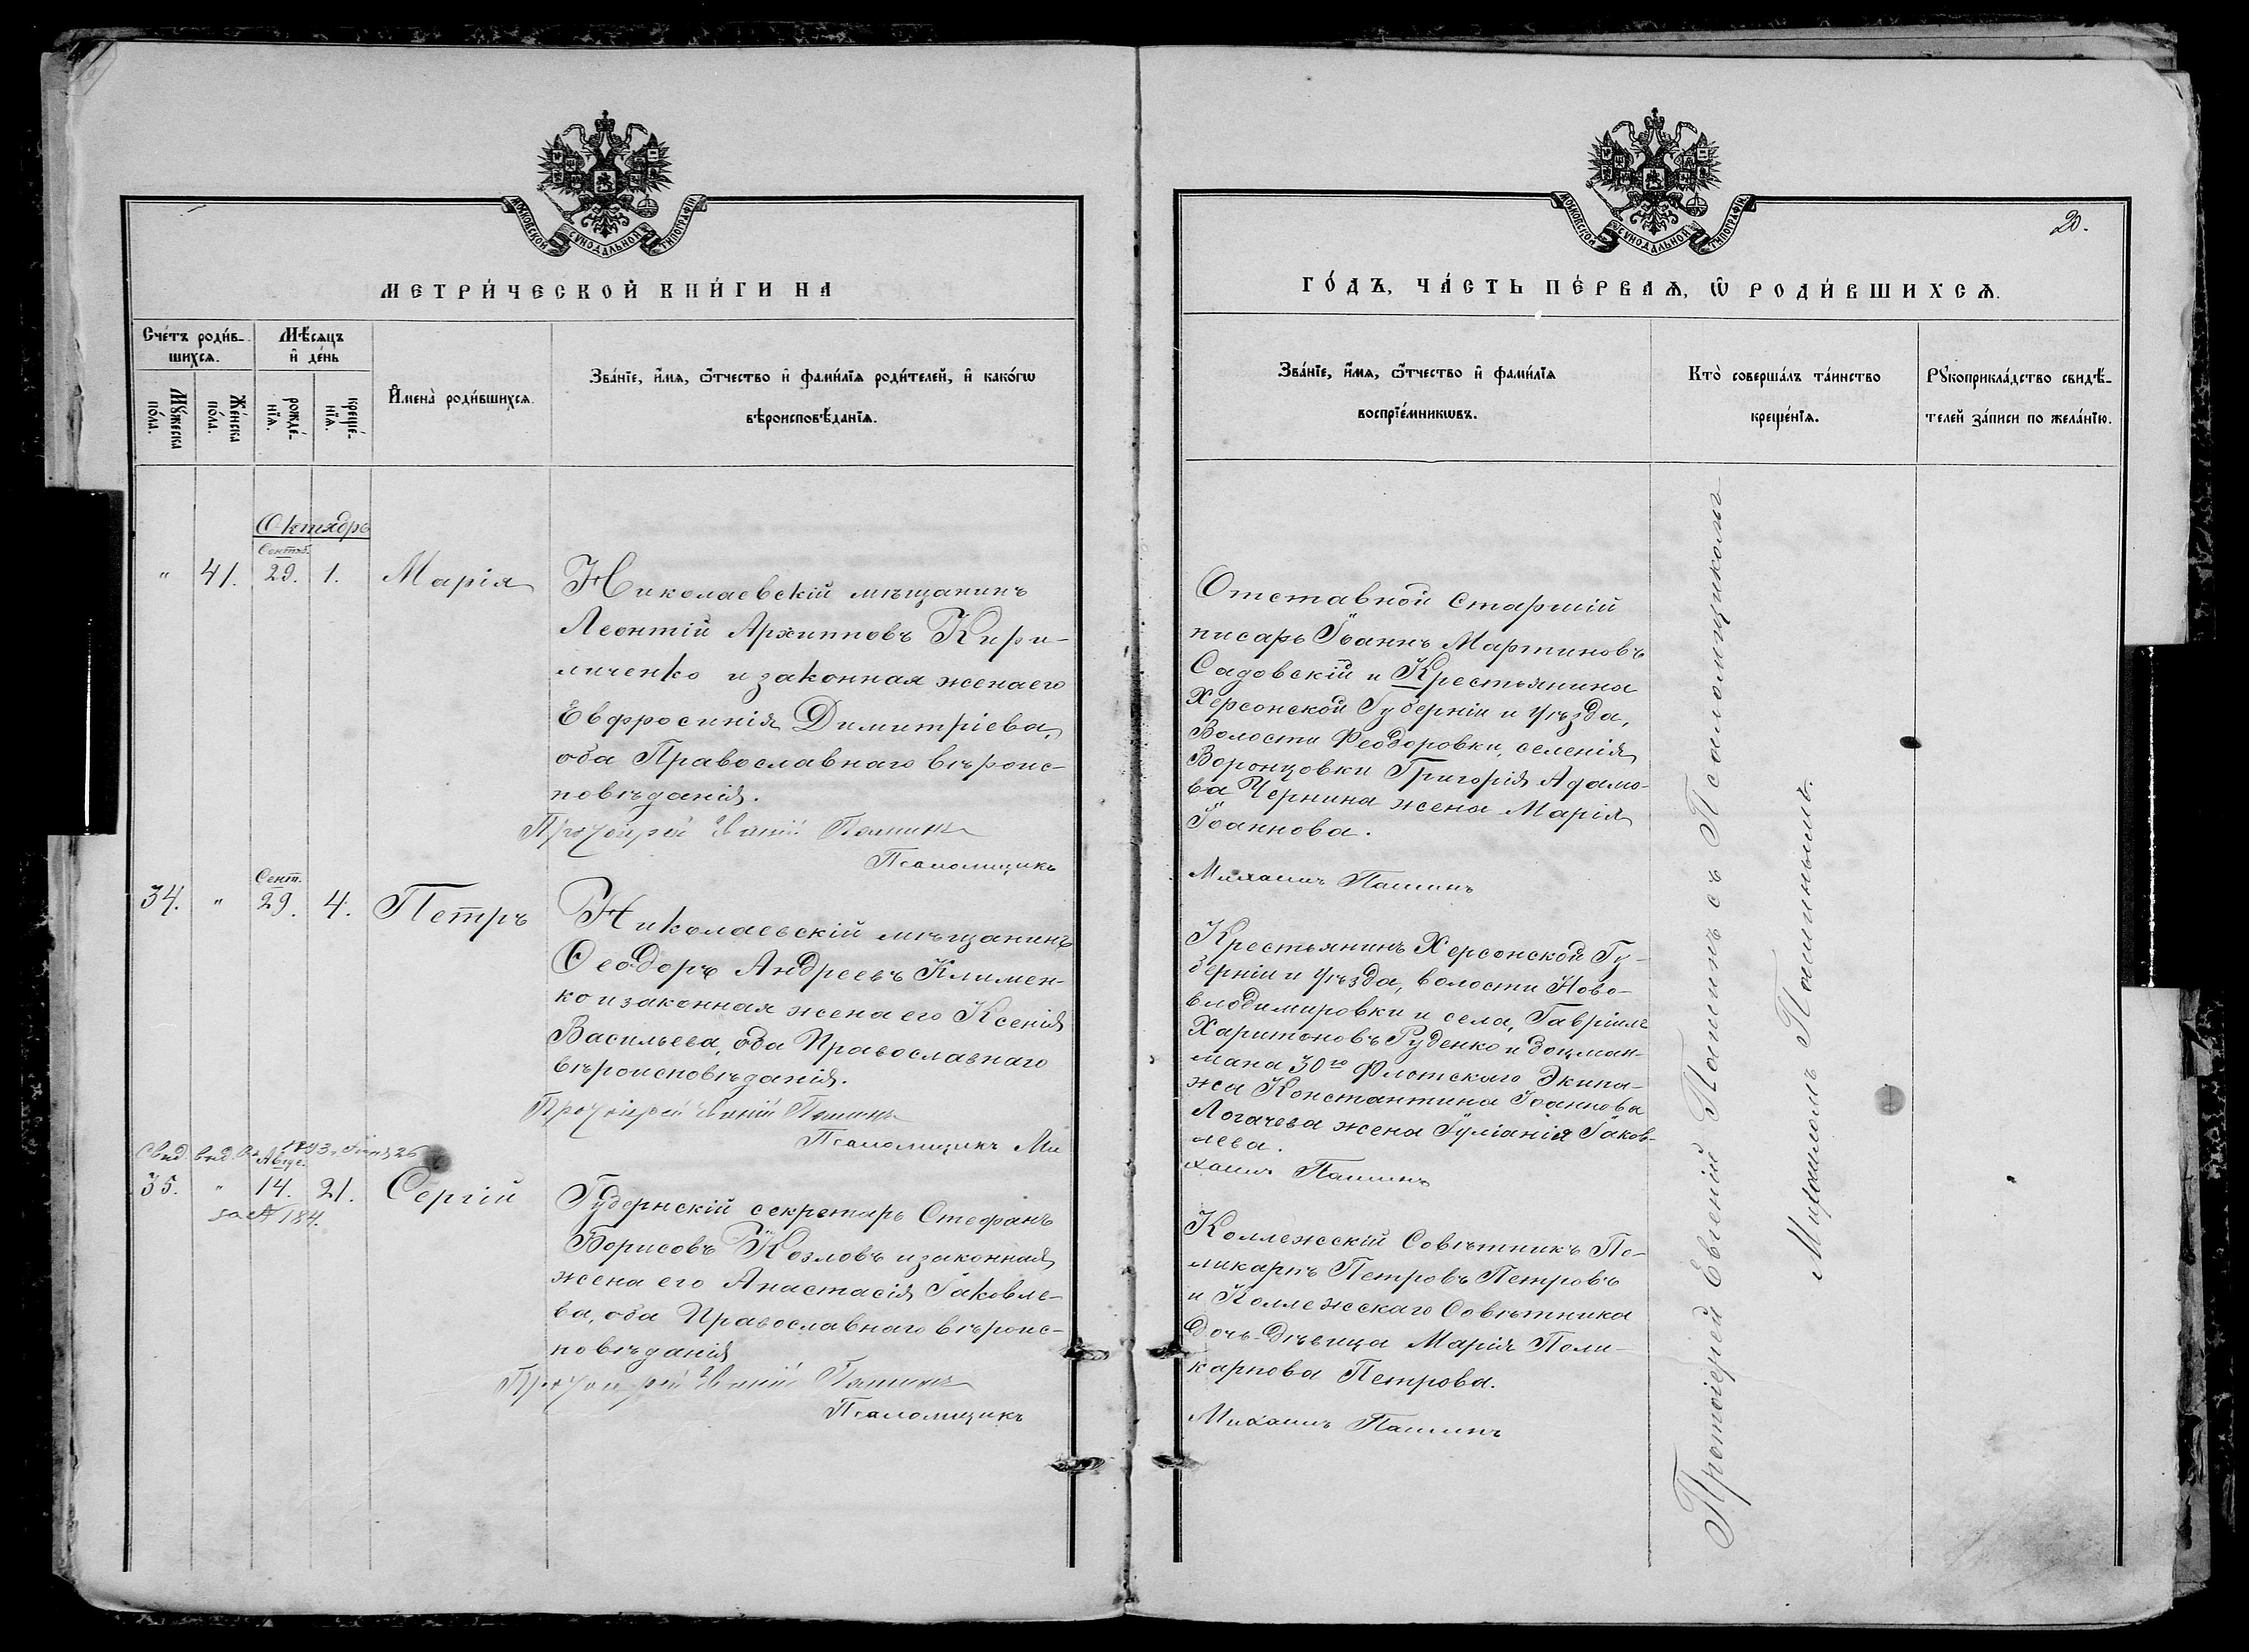 МОСКОВСКОЙ СѴНОДАЛЬНОЙ ТИПОГРАФІИ
МЕТРИ́ЧЕСКОЙ КНИ́ГИ НА
Сче́тъ роди́в-
шихсѧ.
Мꙋ́жеска
по́ла.
Же́нска
по́ла.
Мѣ́сѧцъ
и҆ де́нь
рожде́-
нїѧ.
креще́-
нїѧ.
И҆мена̀ роди́вшихсѧ.
Зва́нїе, и҆́мѧ, ѻ҆́тчество и҆ фами́лїѧ роди́телей, и҆ како́гѡ
вѣроисповѣ́данїѧ.
Октябрь
Сентяб.
" 41. 29. 1. Марія
Николаевскій мѣщанинъ
Леонтій Архипповъ Кири-
личенко и законная жена его
Евфросинія Димитріева,
оба Православнаго вѣроис-
повѣданія.
Протоіерей Пашинъ
Псаломщикъ
Сент.
34. " 29. 4. Петръ
Николаевскій мѣщанинъ
Ѳеодоръ Андреевъ Климен-
ко и законная жена его Ксенія
Васильева, оба Православнаго
вѣроисповѣданія.
Протоіерей Пашинъ
Псаломщикъ Ми
Свид. выд.
Авгус.
35. " 14. 21. Сергій
за № 184.
Губернскій секретарь Стефанъ
Борисовъ Козловъ и законная
жена его Анастасія Іаковле-
ва, оба Православнаго вѣроис-
повѣданія
Протоіерей Пашинъ
Псаломщикъ
МОСКОВСКОЙ СѴНОДАЛЬНОЙ ТИПОГРАФІИ
20.
ГО́ДЪ, ЧА́СТЬ ПЕ́РВАѦ, Ѡ҆ РОДИ́ВШИХСѦ.
Зва́нїе, и҆́мѧ, ѻ҆́тчество и҆ фами́лїѧ
воспрїе́мникѡвъ.
Кто̀ соверша́лъ та́инство
креще́нїѧ.
Рꙋкоприкла́дство свидѣ́-
телей за́писи по жела́нїю.
Отставной Старшій
писарь Іоаннъ Мартиновъ
Садовскій и Крестьянина
Херсонской Губерніи и Уѣзда,
Волости Феодоровки, селенія
Воронцовки Григорія Адамо-
ва Чернина жена Марія
Іоаннова.
Михаилъ Пашинъ
Крестьянинъ Херсонской Гу-
берніи и Уѣзда, волости Ново-
влодимировки и села, Гавріилъ
Харитоновъ Руденко и боцман-
мана 30го Флотскаго Экипа-
жа Константина Іоаннова
Логачева жена Іуліанія Іаков-
лева.
хаилъ Пашинъ
Коллежскій Совѣтникъ По-
ликарпъ Петровъ Петровъ
и Коллежскаго Совѣтника
дочь-дѣвица Марія Поли-
карпова Петрова.
Михаилъ Пашинъ
Протоіерей Евгеній Пашинъ съ Псаломщикомъ
Михаиломъ Пашинымъ.